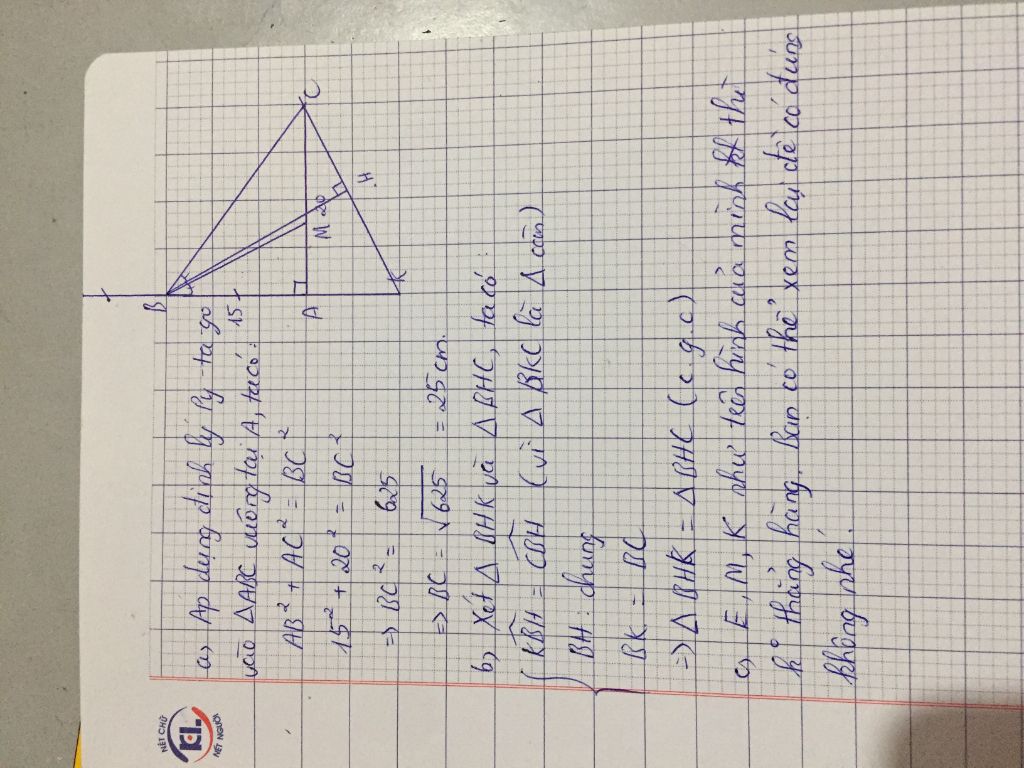 NÉT CHỮ
KL
NẾT NGƯỜI
B
15
A
M
20
H
C
K
a, Áp dụng định lý Py-ta-go
vào ΔABC vuông tại A, ta có:
AB² + AC² = BC²
15² + 20² = BC²
=> BC² = 625
=> BC = √625 = 25 cm.
b, Xét Δ BHK và Δ BHC, ta có:
KBH = CBH (vì Δ BKC là Δ cân)
BH: chung
BK = BC
=> Δ BHK = Δ BHC (c.g.c)
c, E, M, K như trên hình của mình thì
k° thẳng hàng. Bạn có thể xem lại đề có đúng
không nhé.